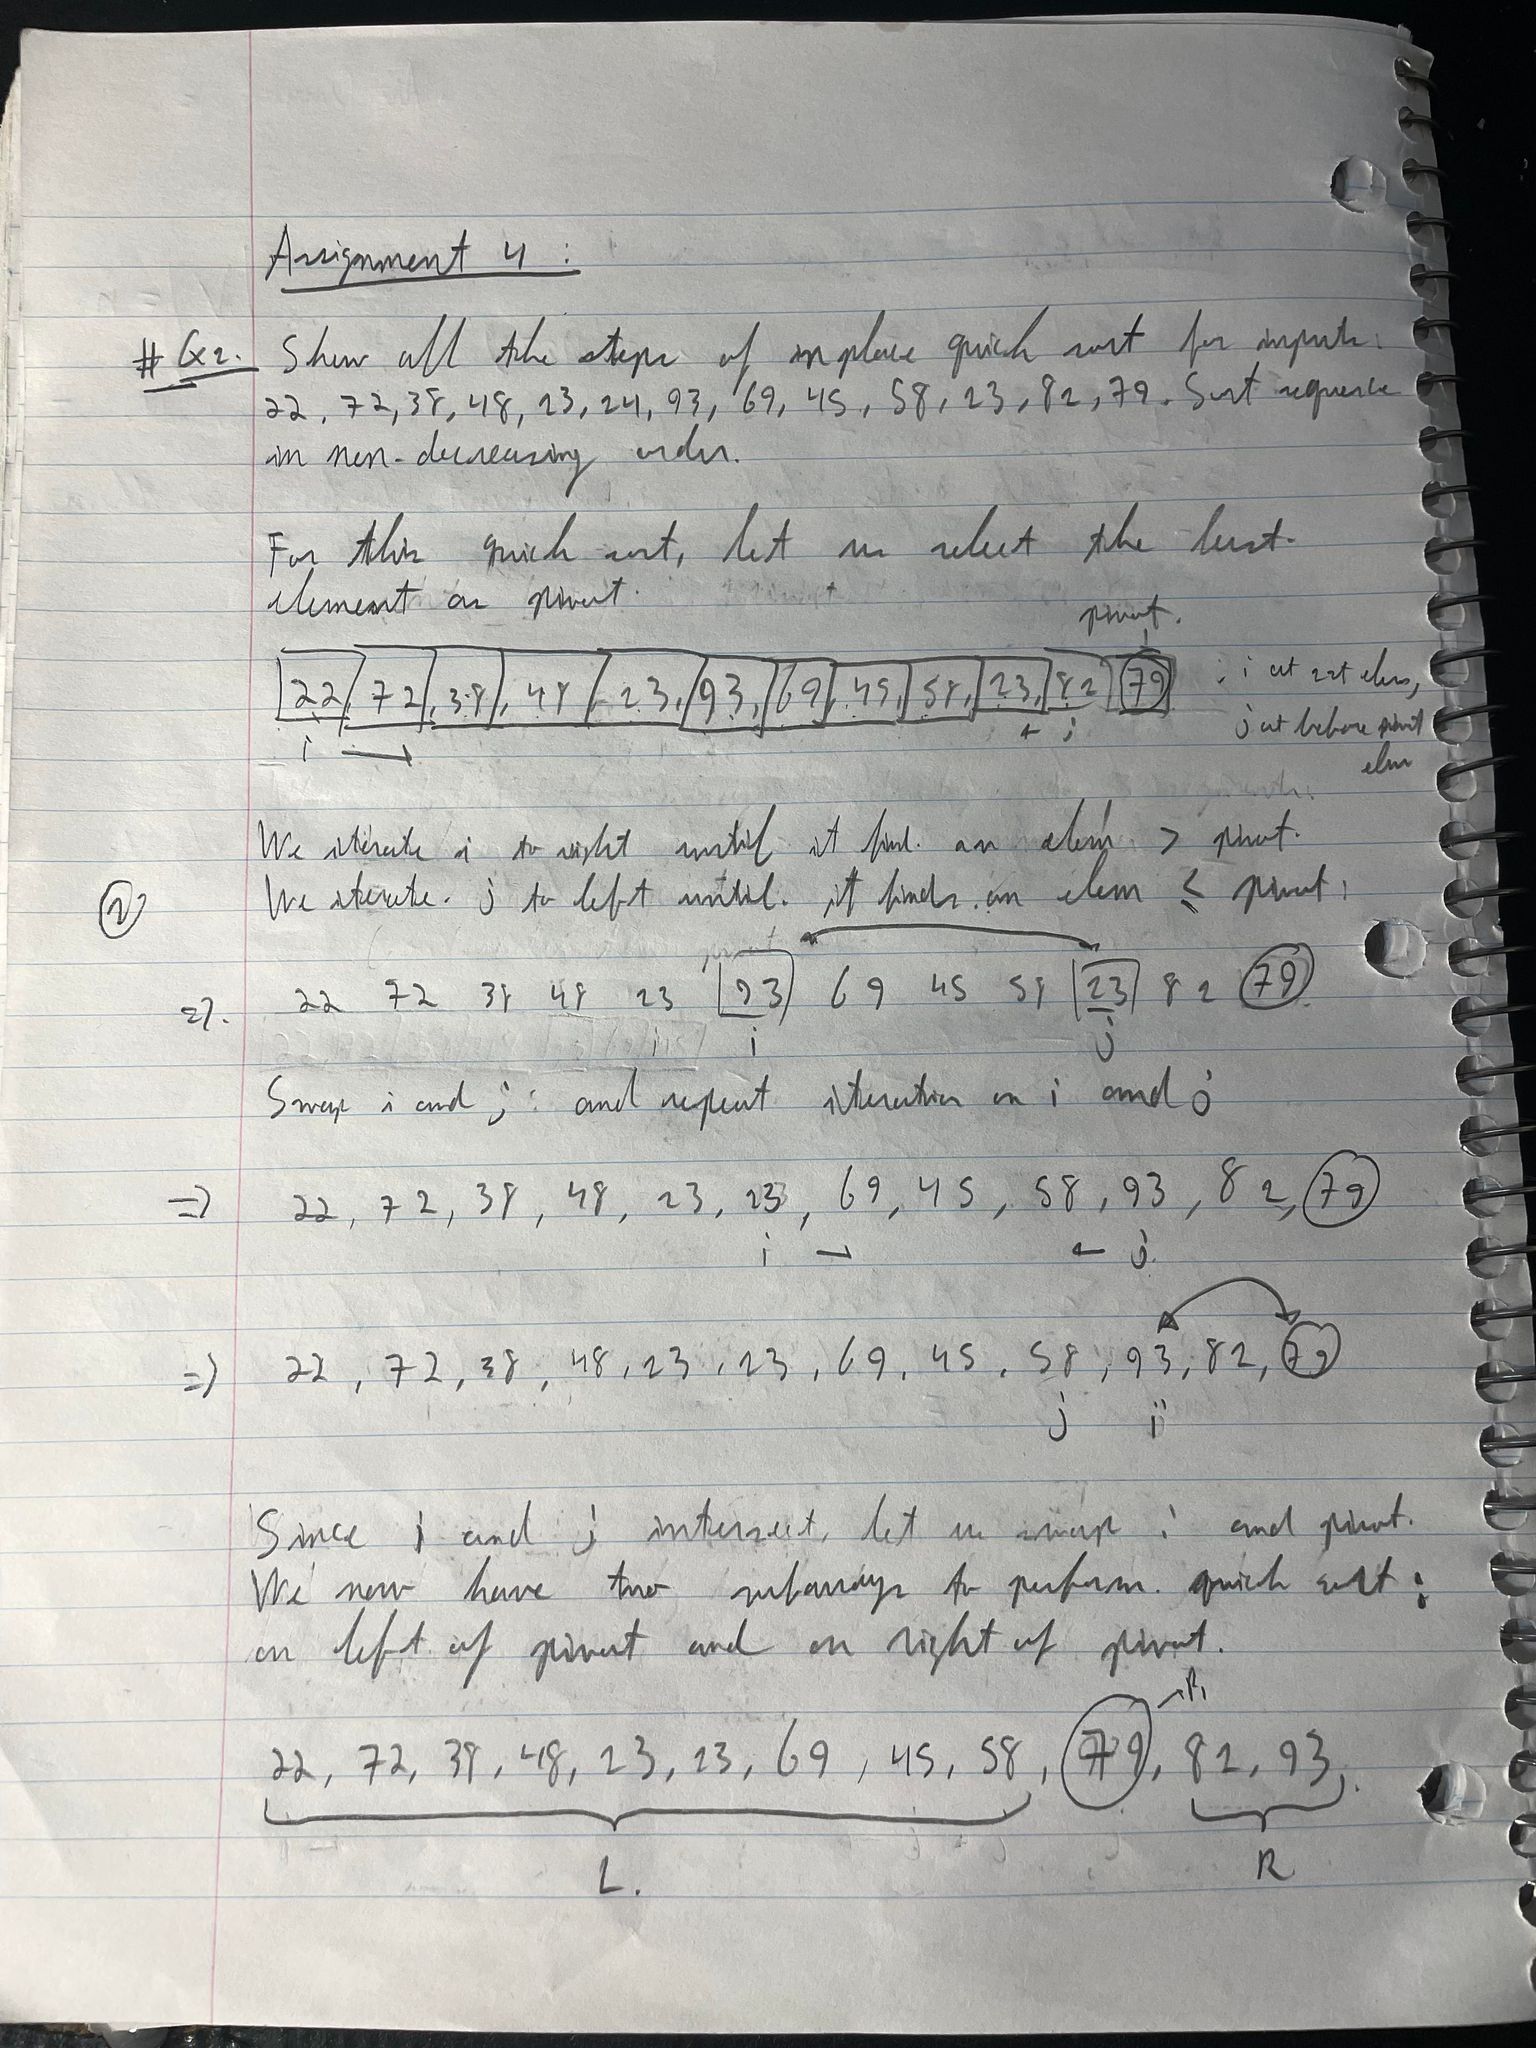 Assignment 4 :
# Q2. Show all the steps of in place quick sort for input:
22, 72, 38, 48, 23, 24, 93, 69, 45, 58, 23, 82, 79. Sort sequence
in non-decreasing order.
For this quick sort, let us select the last
element as pivot.
pivot.
22, 72, 38, 48, 23, 93, 69, 45, 58, 23, 82 79 : i at 1st elem,
i → ← j j at before pivot
elem
We iterate i to right until it find. an elem > pivot.
① We iterate. j to left until. it finds. an elem ≤ pivot:
=>. 22 72 38 48 23 93 69 45 58 23 82 79
i j
Swap i and j : and repeat iteration on i and j
=> 22, 72, 38, 48, 23, 23, 69, 45, 58, 93, 82, 79
i → ← j
=> 22, 72, 38, 48, 23, 23, 69, 45, 58, 93, 82, 79
j i
Since i and j intersect, let us swap i and pivot.
We now have two subarrays to perform. quick sort :
on left of pivot and on right of pivot.
→ P1
22, 72, 38, 48, 23, 23, 69, 45, 58, 79, 82, 93.
L. R